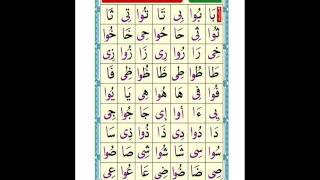 بَا بُوا بِى تَا تُوا تِى ثَا
ثُوا ثِى حَا حُوا حِى خَا خُوا
خِى رَا رُوا رِى زَا زُوا زِى
طَا طُوا طِى ظَا ظُوا ظِى فَا
فُوا فِى هَا هُوا هِى يَا يُوا
يِى ءَا أُوا اِى جَا جُوا جِى
دَا دُوا دِى ذَا ذُوا ذِى سَا
سُوا سِى شَا شُوا شِى صَا صُوا
صِى ضَا ضُوا ضِى عَا عُوا عِى